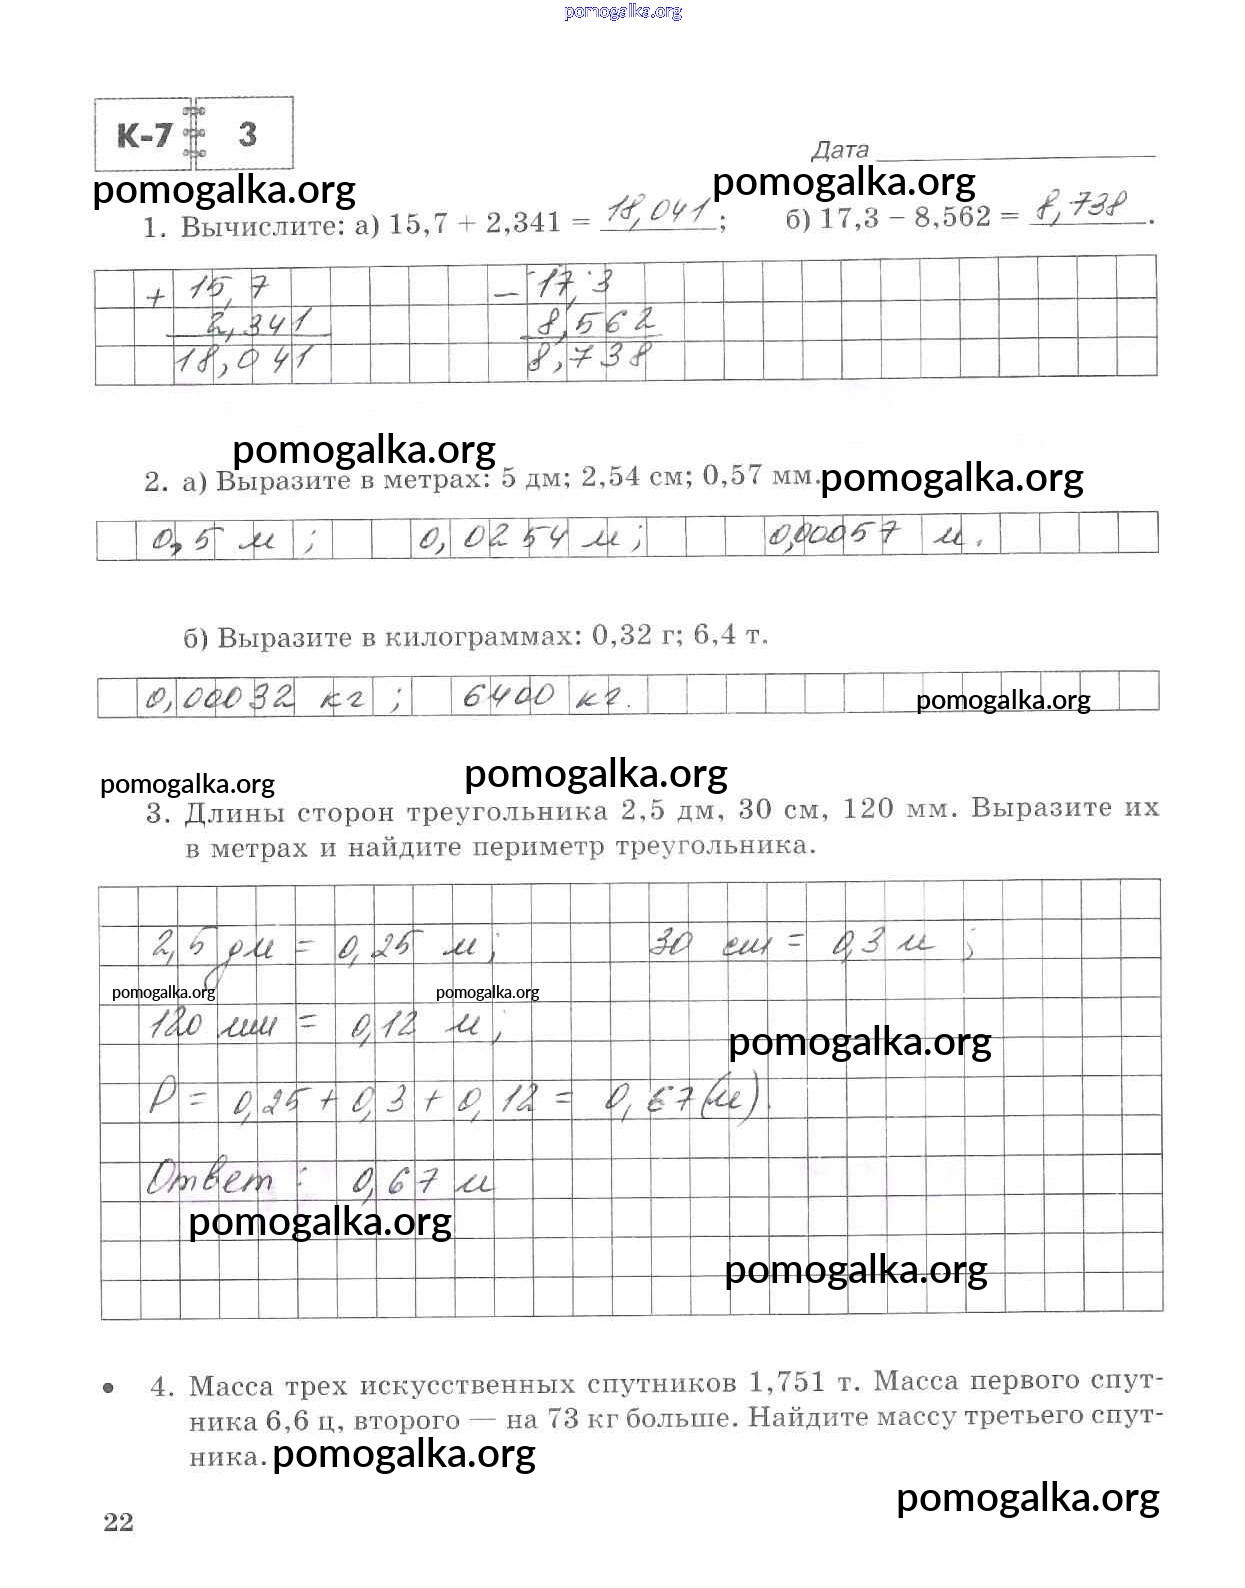 pomogalka.org
К-7 3
Дата
pomogalka.org pomogalka.org
1. Вычислите: а) 15,7 + 2,341 = 18,041; б) 17,3 − 8,562 = 8,738.
+ 15,7 − 17,3
2,341 8,562
18,041 8,738
pomogalka.org
2. а) Выразите в метрах: 5 дм; 2,54 см; 0,57 мм. pomogalka.org
0,5 м; 0,0254 м; 0,00057 м.
б) Выразите в килограммах: 0,32 г; 6,4 т.
0,00032 кг; 6400 кг. pomogalka.org
pomogalka.org pomogalka.org
3. Длины сторон треугольника 2,5 дм, 30 см, 120 мм. Выразите их
в метрах и найдите периметр треугольника.
2,5 дм = 0,25 м; 30 см = 0,3 м;
pomogalka.org pomogalka.org
120 мм = 0,12 м;
pomogalka.org
P = 0,25 + 0,3 + 0,12 = 0,67 (м).
Ответ: 0,67 м
pomogalka.org
pomogalka.org
• 4. Масса трех искусственных спутников 1,751 т. Масса первого спут-
ника 6,6 ц, второго — на 73 кг больше. Найдите массу третьего спут-
ника. pomogalka.org
pomogalka.org
22